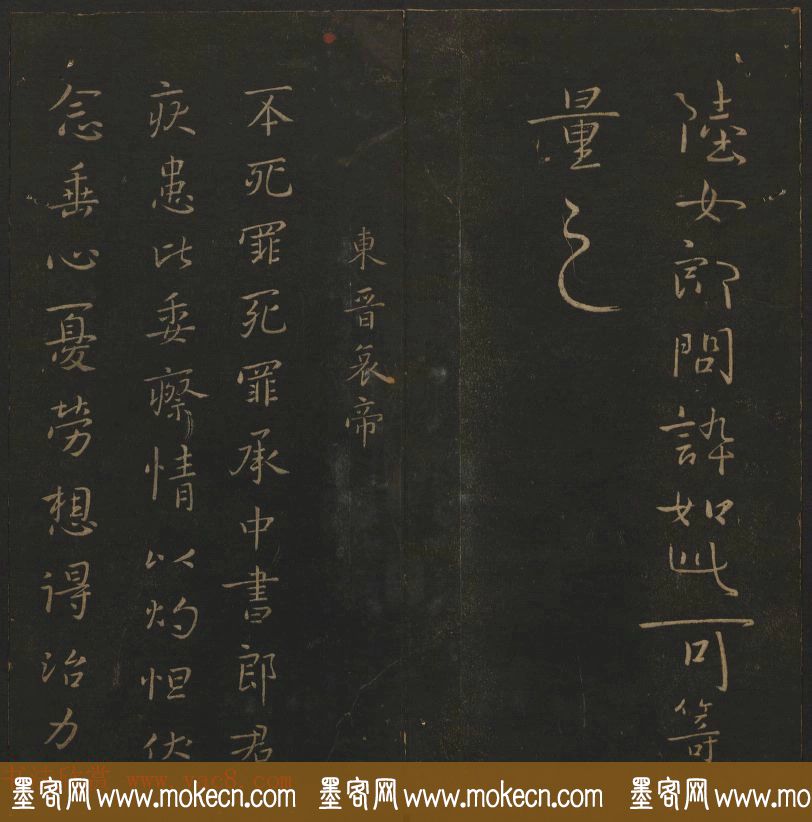 陸女郎問訊如此可籌
量之
東晉哀帝
丕死罪死罪承中書郎君
疾患比委瘵情以灼怛伏
念垂心憂勞想得治力
书法欣赏 www.yac8.com
墨客网 www.mokecn.com 墨客网 www.mokecn.com 墨客网 www.mokecn.com